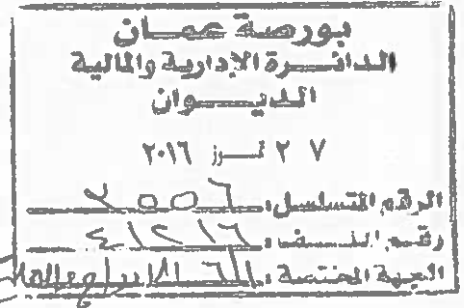 بورصة عمان
الدائرة الإدارية والمالية
الديوان
٢٧ تموز ٢٠١٦
الرقم المتسلسل:
رقم الملف: ٤١٢١٦
الجهة المختصة: